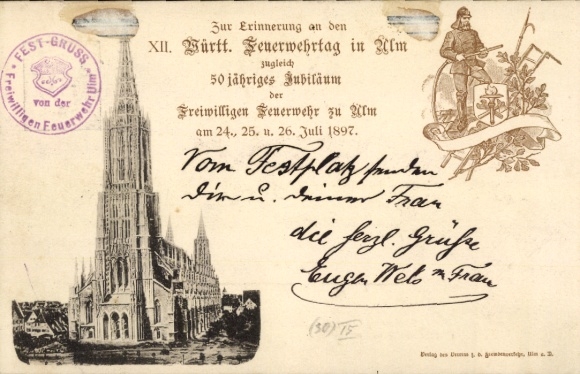 Zur Erinnerung an den
XII. Württ. Feuerwehrtag in Ulm
zugleich
50 jähriges Jubiläum
der
Freiwilligen Feuerwehr zu Ulm
am 24., 25. u. 26. Juli 1897.
FEST-GRUSS
von der
Freiwilligen Feuerwehr Ulm
Vom Festplatz senden
dir u. deiner Frau
die herzl. Grüße
Eugen u Frau
(30) 15
Verlag des Vereins z. d. Fremdenverkehr, Ulm a. D.